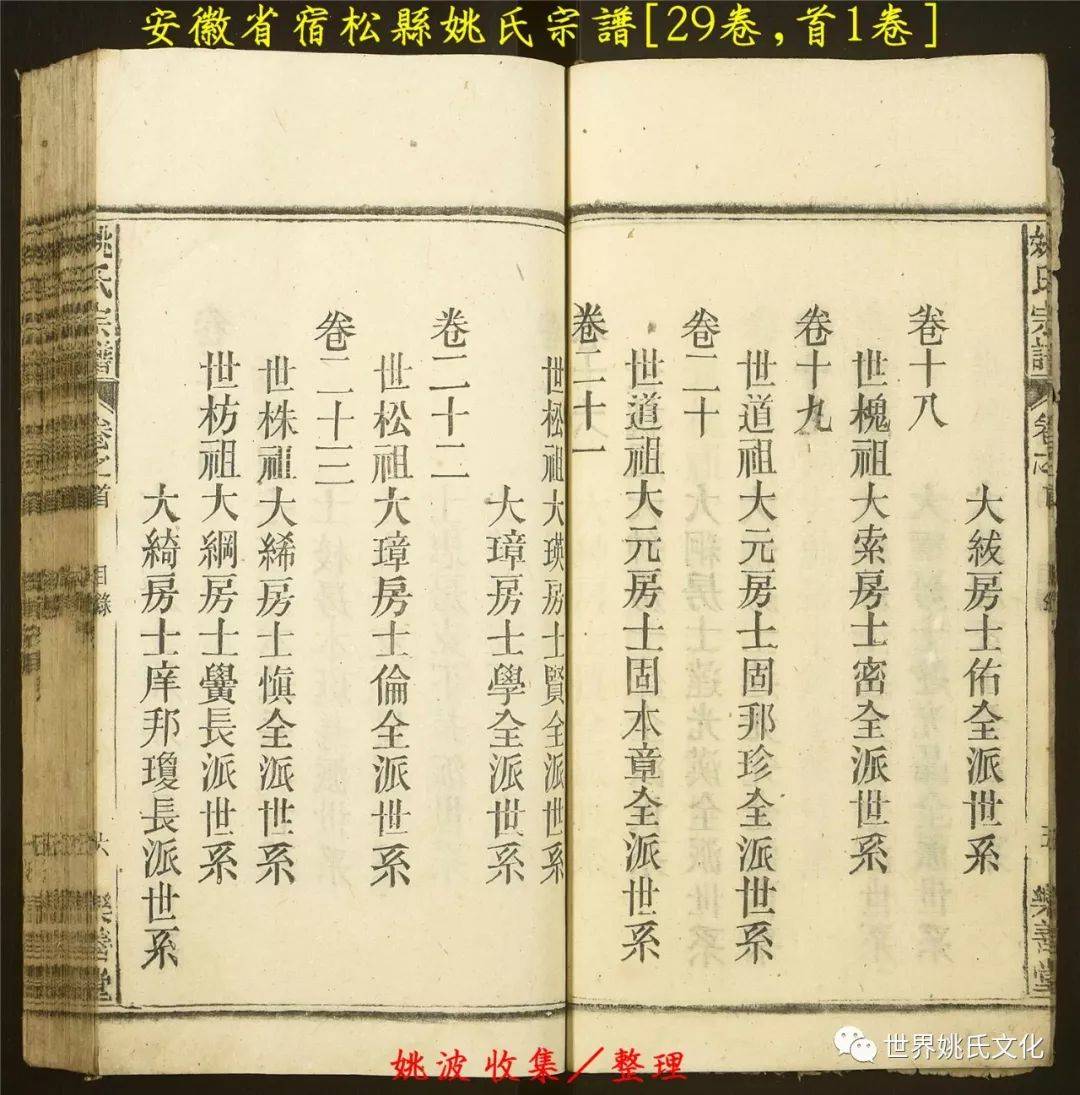 安徽省宿松縣姚氏宗譜[29卷,首1卷]
姚氏宗譜 卷之首 樂善堂
大紱房士佑全派世系
卷十八
世槐祖大索房士密全派世系
卷十九
世道祖大元房士固邦珍全派世系
卷二十
世道祖大元房士固本章全派世系
卷二十一
世松祖大瑛房士賢全派世系
大璋房士學全派世系
卷二十二
世松祖大璋房士倫全派世系
卷二十三
世株祖大絺房士愼全派世系
世枋祖大綱房士黌長派世系
大綺房士庠邦瓊長派世系
姚氏宗譜 卷之首 目錄 六 樂善堂
姚波收集/整理
世界姚氏文化